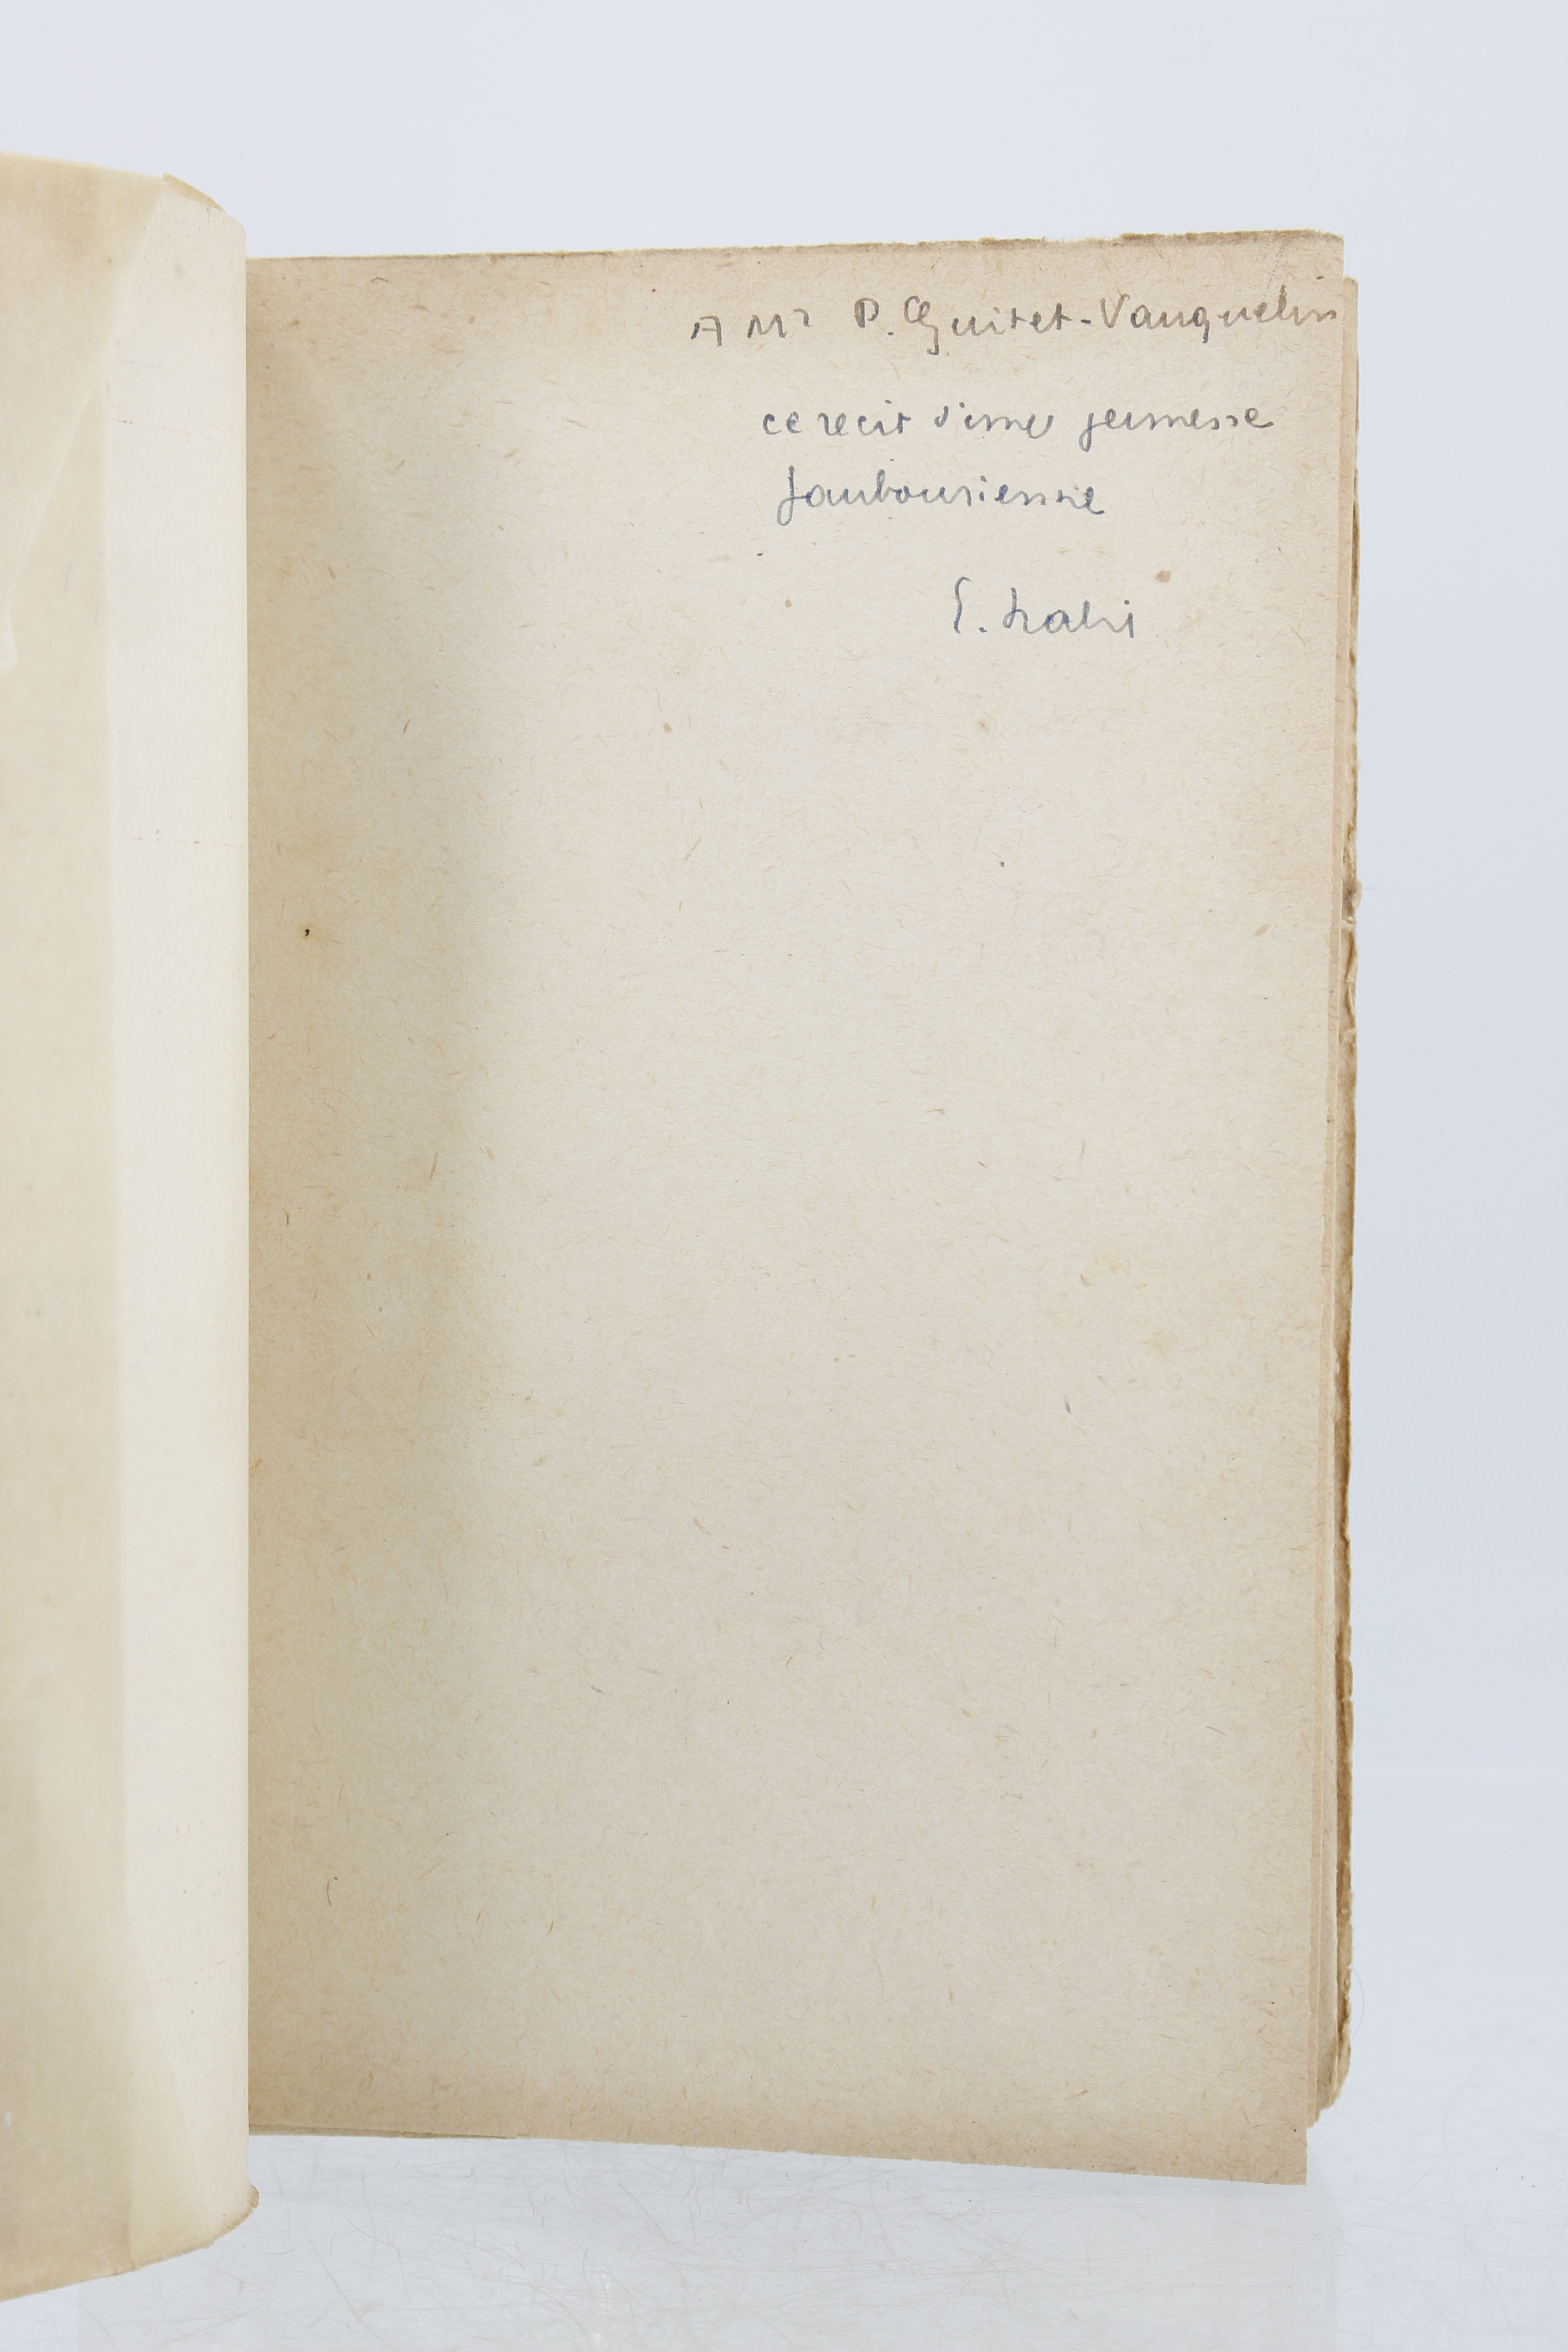 A Mr P. Guitet-Vauquelin
ce recit d'une jeunesse
faubourienne
E. Dabi